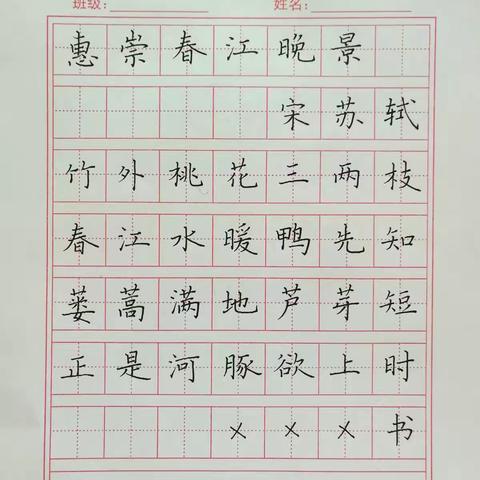 班级： 姓名：
惠崇春江晚景
宋苏轼
竹外桃花三两枝
春江水暖鸭先知
蒌蒿满地芦芽短
正是河豚欲上时
×××书